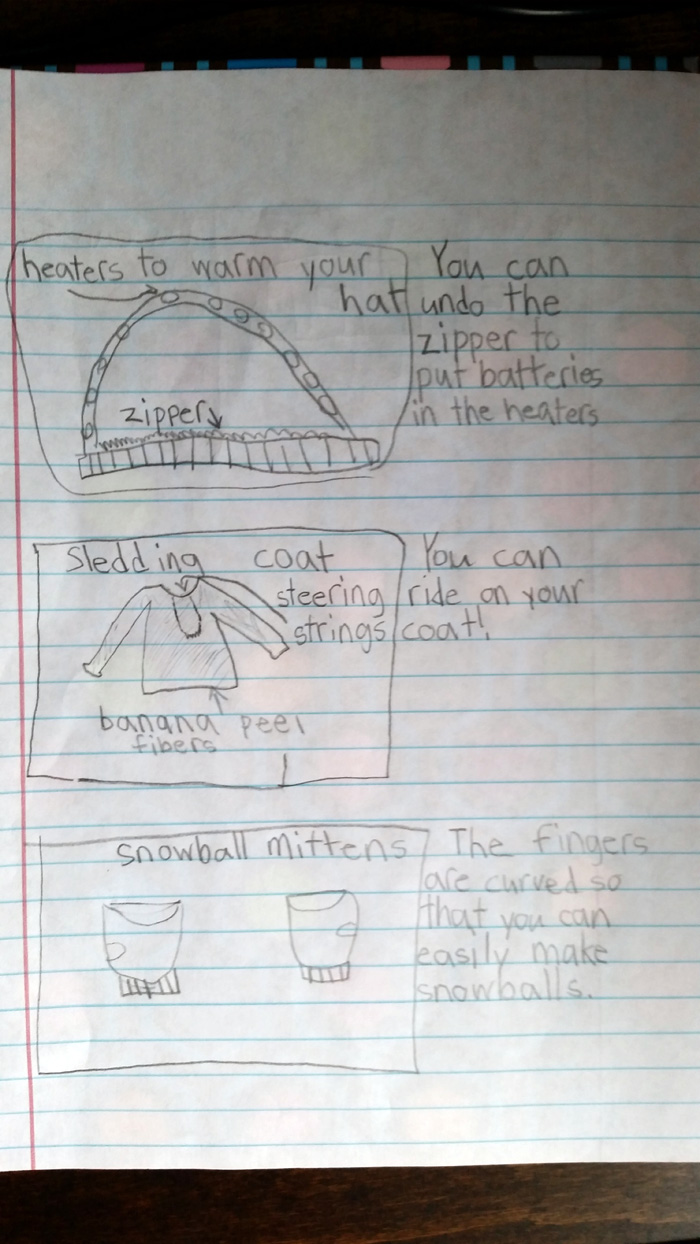 heaters to warm your
hat
zipper
You can
undo the
zipper to
put batteries
in the heaters
Sledding coat
steering
strings
banana peel
fibers
You can
ride on your
coat!
snowball mittens
The fingers
are curved so
that you can
easily make
snowballs.